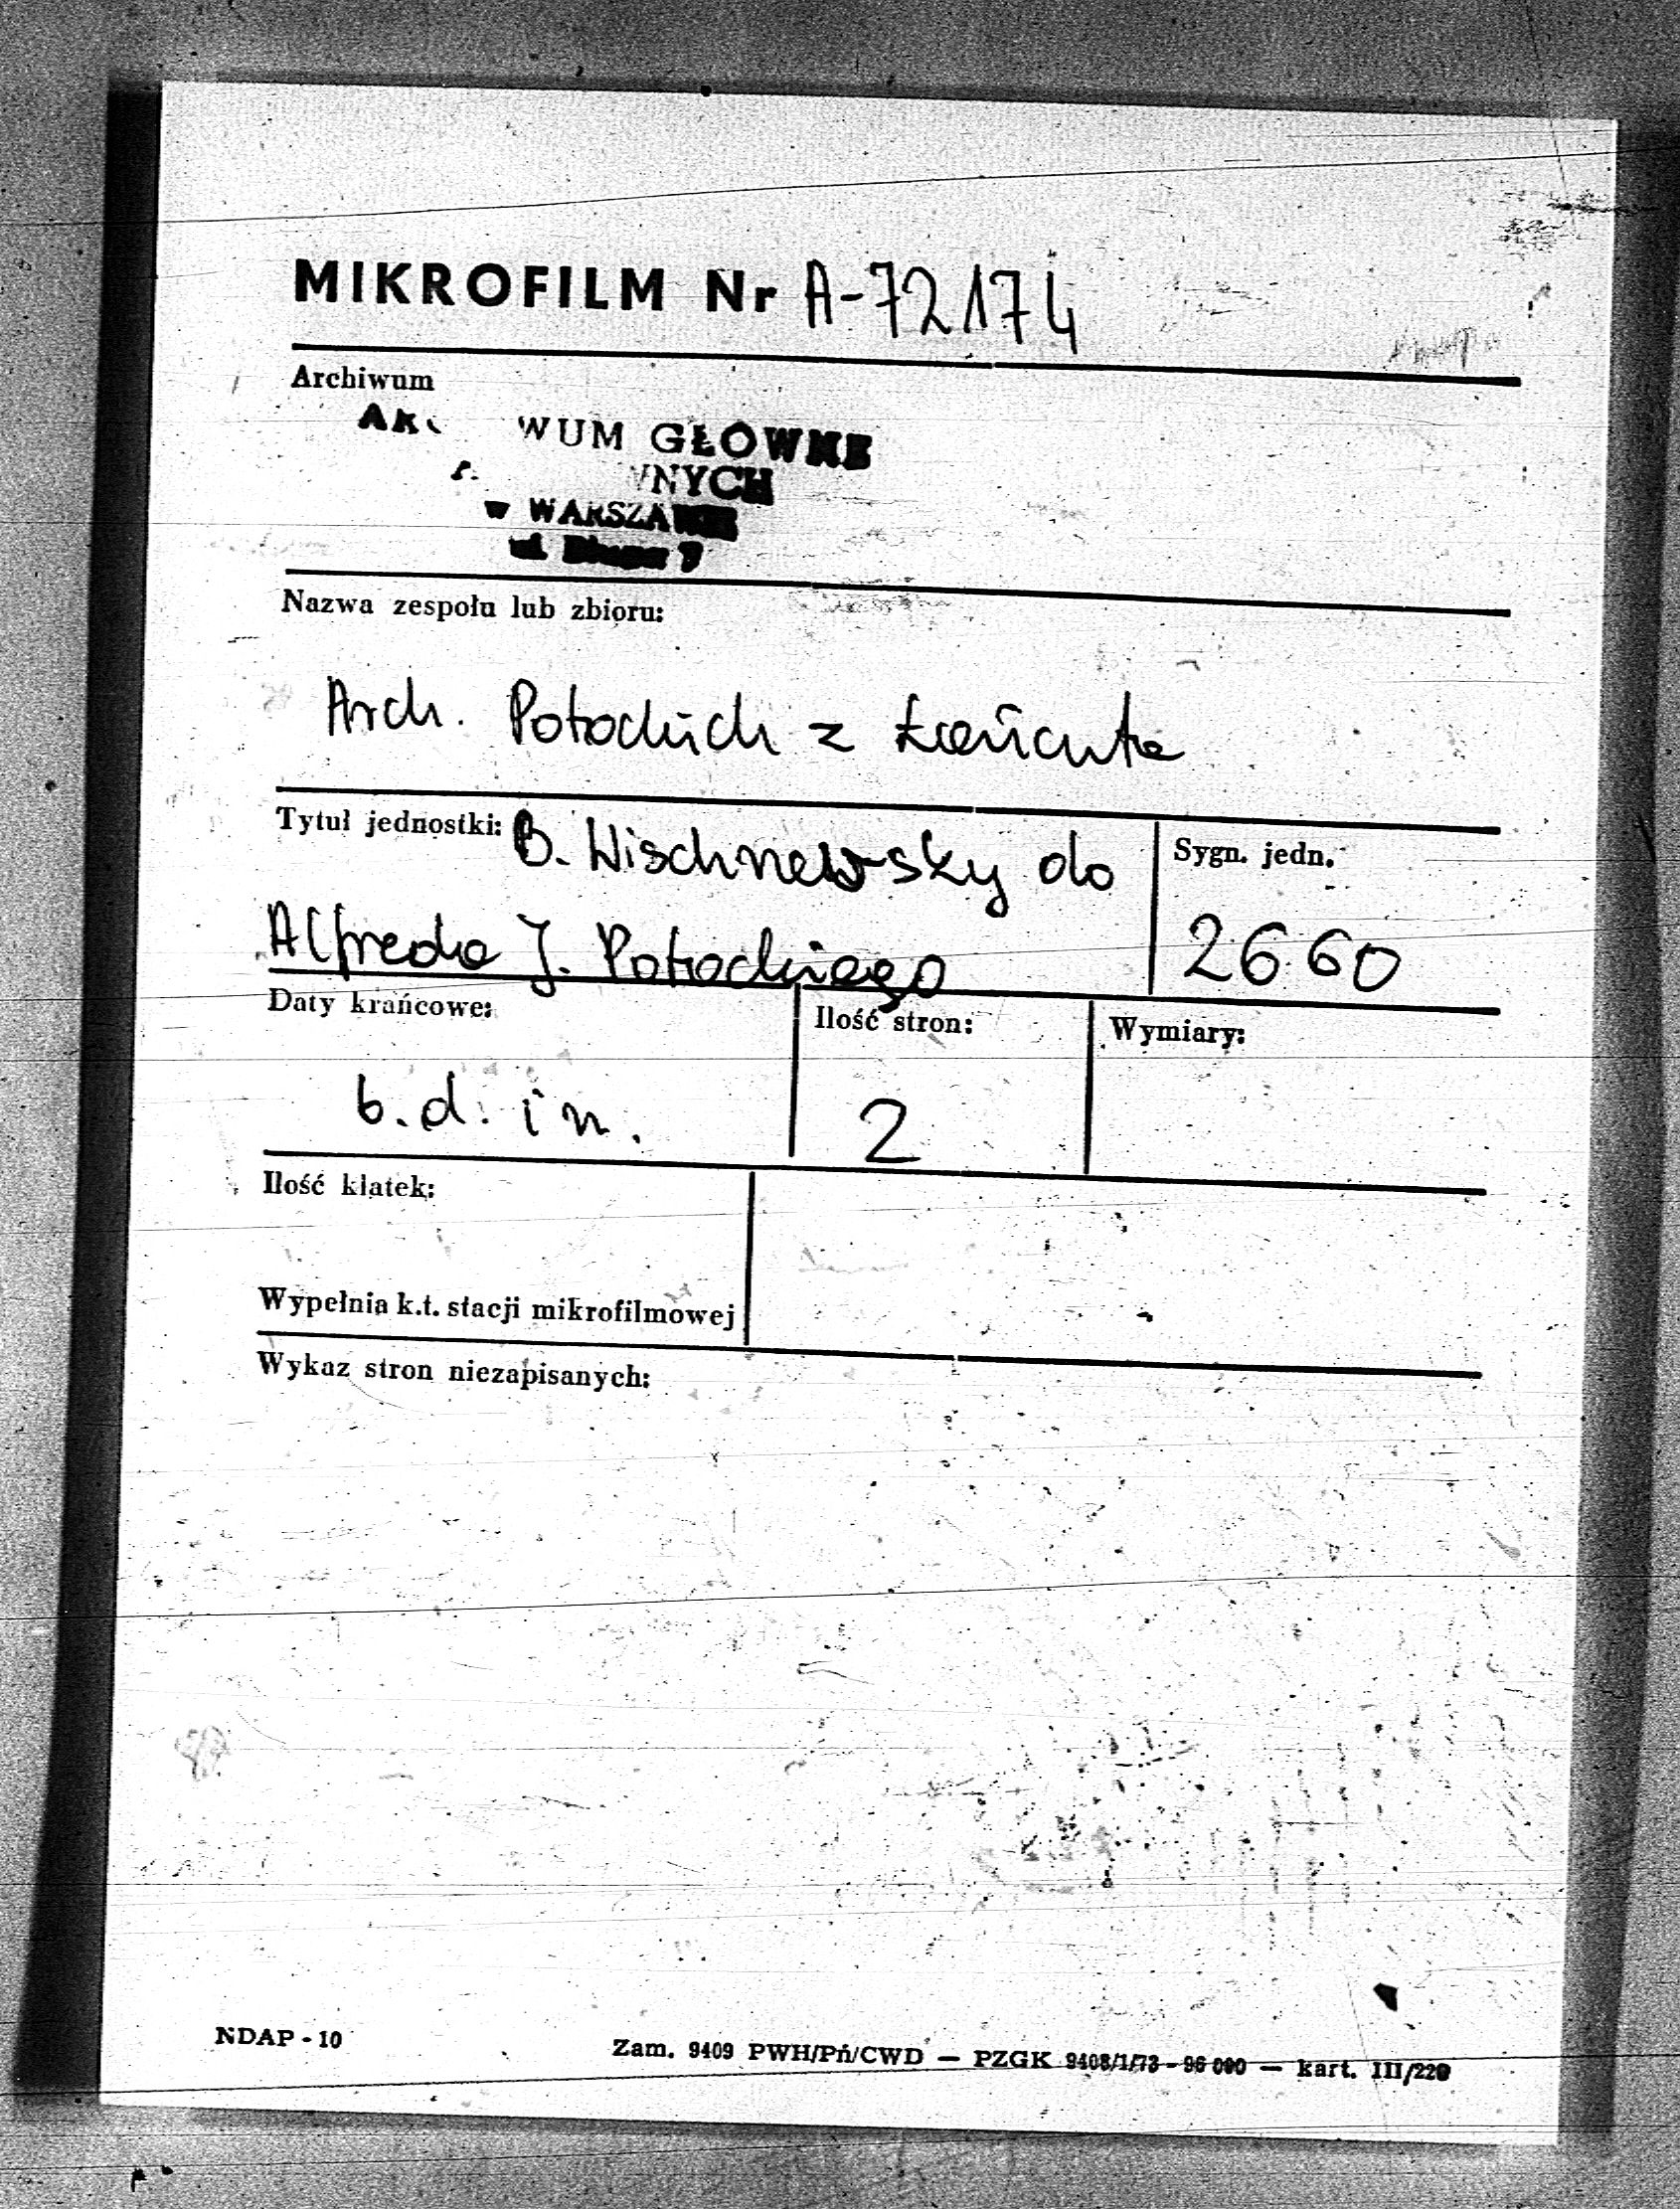 MIKROFILM Nr A-72174
Archiwum
WUM GŁÓWNE
w WARSZAWIE
ul. Długa 7
Nazwa zespołu lub zbioru:
Arch. Potockich z Łańcuta
Tytuł jednostki: B. Wischnewsky do
Sygn. jedn.
Alfreda J. Potockiego
2660
Daty krańcowe:
Ilość stron:
Wymiary:
b.d. i m.
2
Ilość klatek:
Wypełnia k.t. stacji mikrofilmowej
Wykaz stron niezapisanych:
NDAP - 10
Zam. 9409 PWH/Pń/CWD — PZGK 9408/1/73 - 96 000 — kart. III/220